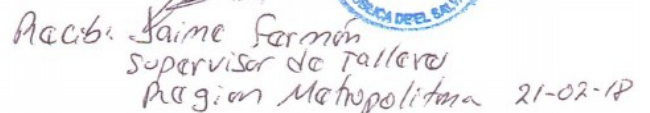 ...BLICA DE EL SALV...
Recibi Jaime Fermón
Supervisor de Talleres
Region Metropolitana 21-02-18